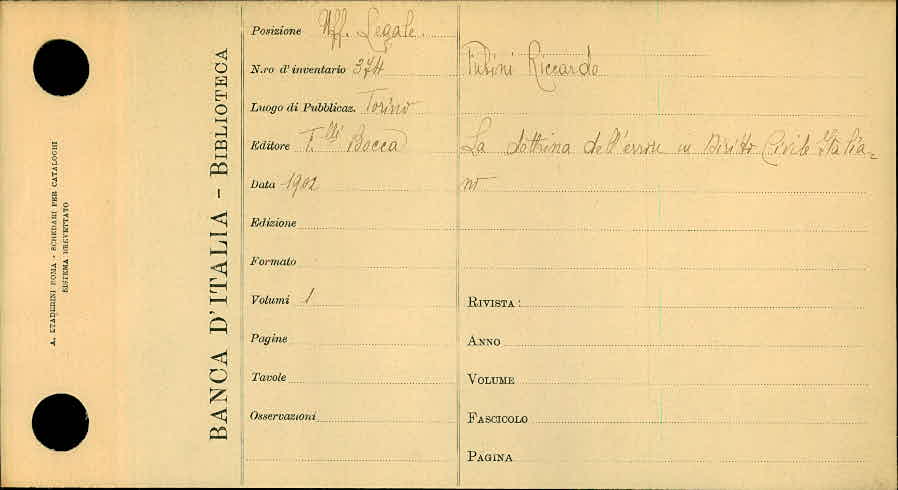 A. STADERINI ROMA - SCHEDARI PER CATALOGHI
SISTEMA BREVETTATO
BANCA D'ITALIA - BIBLIOTECA
Posizione Uff. Legale.
N.ro d'inventario 374
Luogo di Pubblicaz. Torino
Editore F.lli Bocca
Data 1902
Edizione
Formato
Volumi 1
Pagine
Tavole
Osservazioni
Fubini Riccardo
La dottrina dell'errore in Diritto Civile Italia=
no
RIVISTA:
ANNO
VOLUME
FASCICOLO
PAGINA